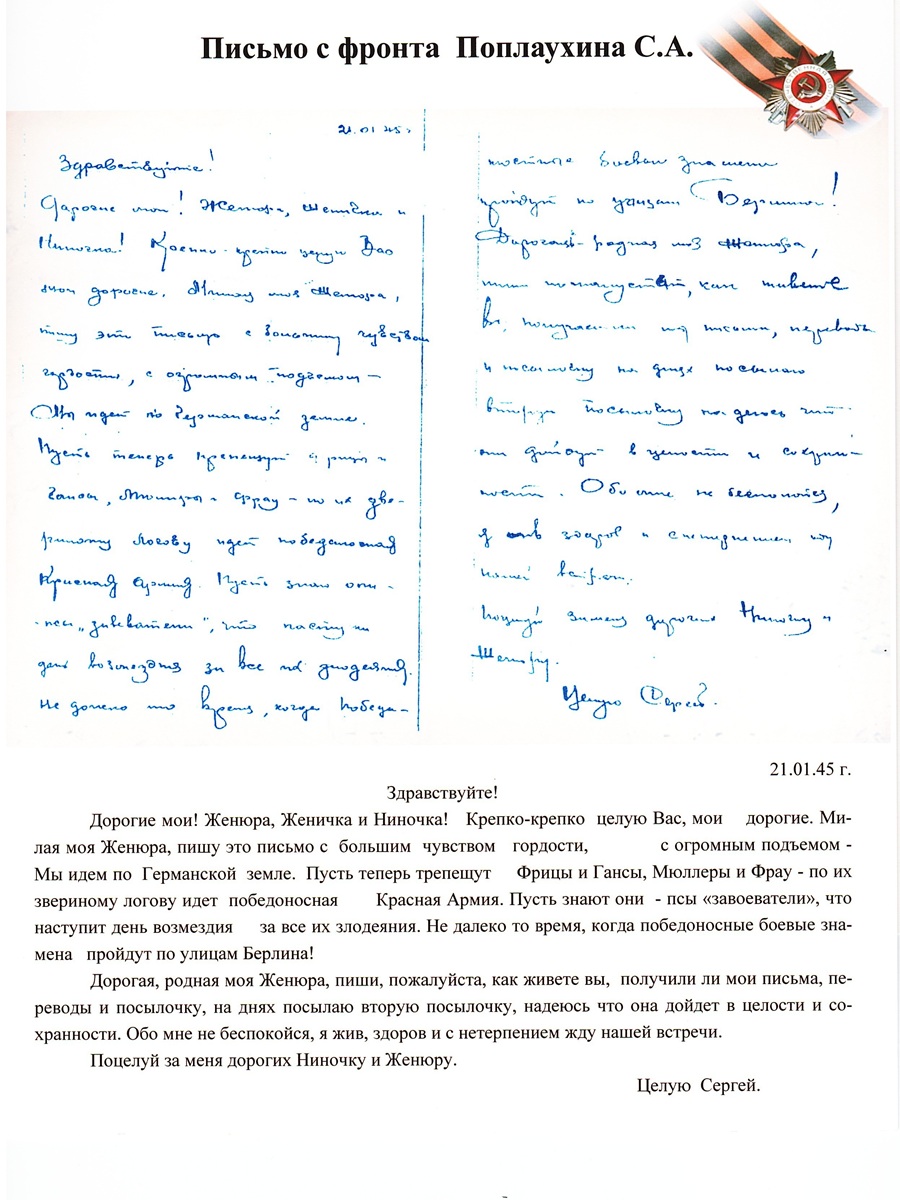 Письмо с фронта Поплаухина С.А.
21.01.45г
Здравствуйте!
Дорогие мои! Женюра, Женичка и
Ниночка! Крепко-крепко целую Вас
мои дорогие. Милая моя Женюра,
пишу это письмо с большим чувством
гордости, с огромным подъемом –
Мы идем по Германской земле.
Пусть теперь трепещут Фрицы и
Гансы, Мюллеры и Фрау – по их зве-
риному логову идет победоносная
Красная Армия. Пусть знают они -
- псы „завеватели", что наступит
день возмездия за все их злодеяния.
Не далеко то время, когда победо-
носные боевые знамена
пройдут по улицам Берлина!
Дорогая, родная моя Женюра,
пиши пожалуйста, как живете
вы, получили ли мои письма, переводы
и посылочку на днях посылаю
вторую посылочку надеюсь что
она дойдет в целости и сохран-
ности. Обо мне не беспокойся,
я жив здоров и с нетерпением жду
нашей встречи.
Поцелуй за меня дорогих Ниночку и
Женюру.
Целую Сергей.
21.01.45 г.
Здравствуйте!
Дорогие мои! Женюра, Женичка и Ниночка! Крепко-крепко целую Вас, мои дорогие. Ми-
лая моя Женюра, пишу это письмо с большим чувством гордости, с огромным подъемом -
Мы идем по Германской земле. Пусть теперь трепещут Фрицы и Гансы, Мюллеры и Фрау - по их
звериному логову идет победоносная Красная Армия. Пусть знают они - псы «завоеватели», что
наступит день возмездия за все их злодеяния. Не далеко то время, когда победоносные боевые зна-
мена пройдут по улицам Берлина!
Дорогая, родная моя Женюра, пиши, пожалуйста, как живете вы, получили ли мои письма, пе-
реводы и посылочку, на днях посылаю вторую посылочку, надеюсь что она дойдет в целости и со-
хранности. Обо мне не беспокойся, я жив, здоров и с нетерпением жду нашей встречи.
Поцелуй за меня дорогих Ниночку и Женюру.
Целую Сергей.